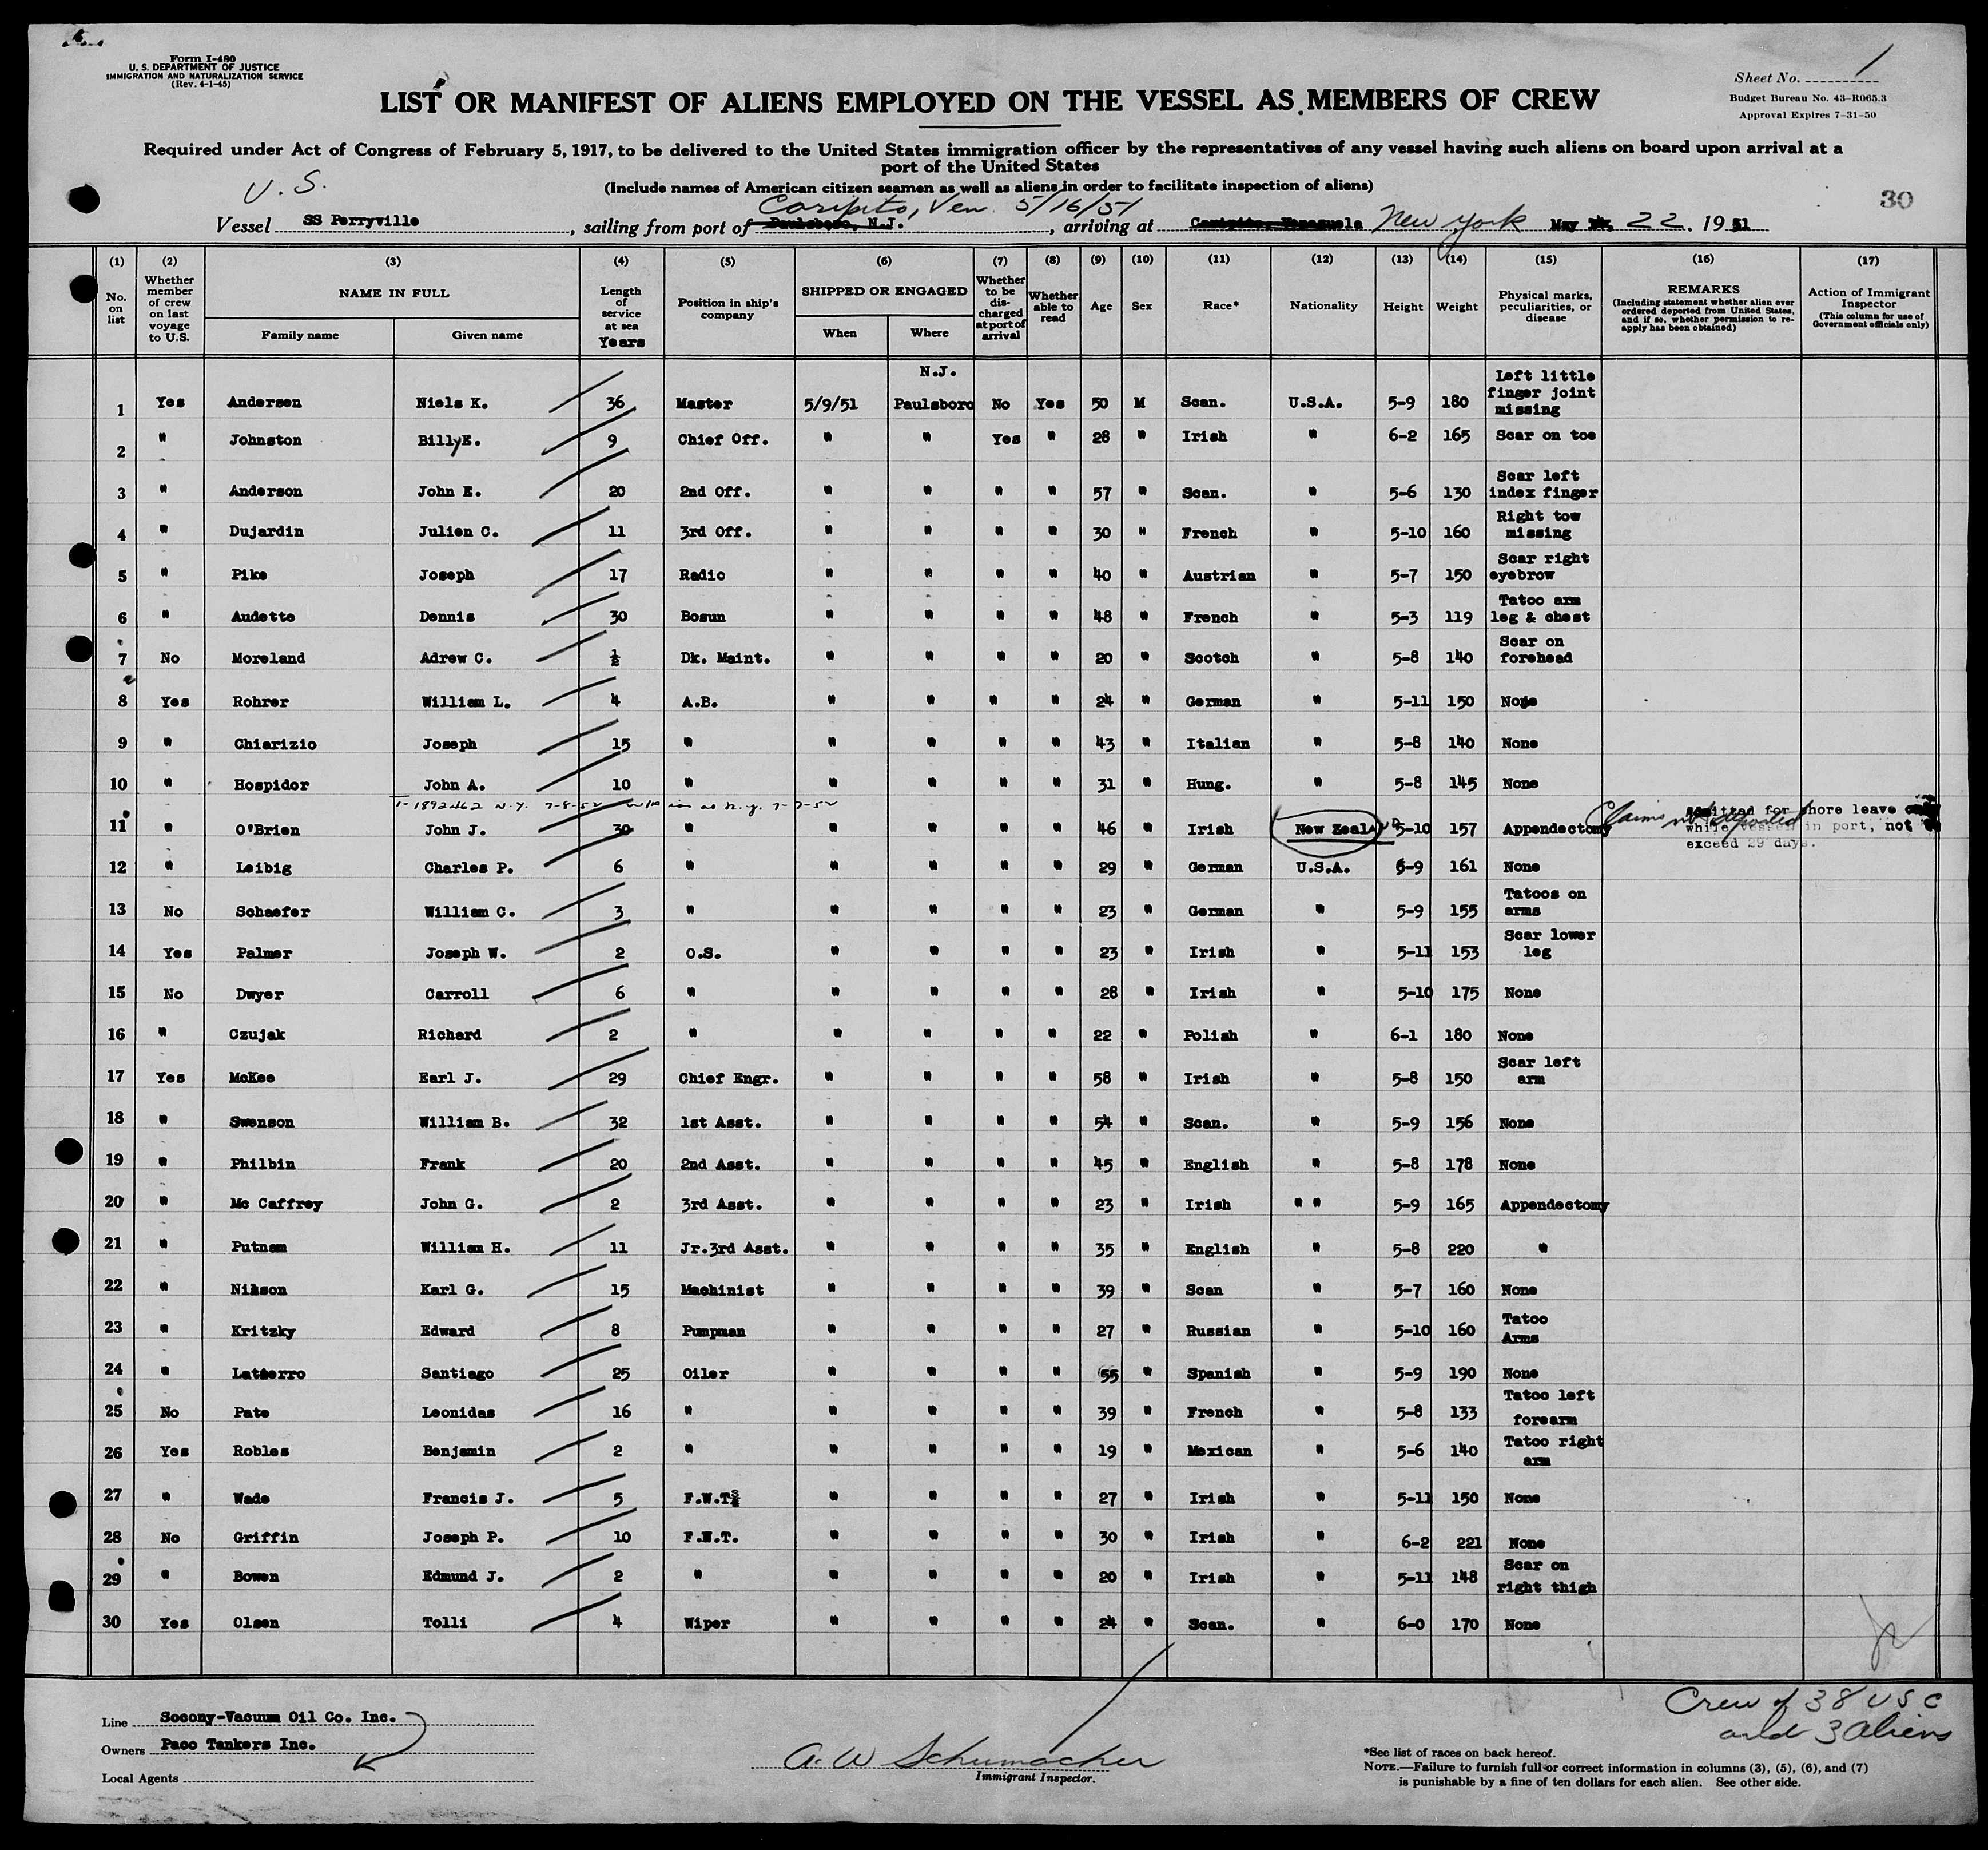 Form I-480
U. S. DEPARTMENT OF JUSTICE
IMMIGRATION AND NATURALIZATION SERVICE
(Rev. 4-1-45)
Sheet No. 1
Budget Bureau No. 43-R065.3
Approval Expires 7-31-50
LIST OR MANIFEST OF ALIENS EMPLOYED ON THE VESSEL AS MEMBERS OF CREW
Required under Act of Congress of February 5, 1917, to be delivered to the United States immigration officer by the representatives of any vessel having such aliens on board upon arrival at a
port of the United States
(Include names of American citizen seamen as well as aliens in order to facilitate inspection of aliens)
U. S.
Caripito, Ven. 5/16/51
30
Vessel SS Perryville, sailing from port of Paulsboro, N.J., arriving at Caripito, Venezuela New York May 22, 1951
(1) (2) (3) (4) (5) (6) (7) (8) (9) (10) (11) (12) (13) (14) (15) (16) (17)
No. on list
Whether member of crew on last voyage to U.S.
NAME IN FULL
Family name
Given name
Length of service at sea Years
Position in ship's company
SHIPPED OR ENGAGED
When
Where
Whether to be discharged at port of arrival
Whether able to read
Age
Sex
Race*
Nationality
Height
Weight
Physical marks, peculiarities, or disease
REMARKS
(Including statement whether alien ever ordered deported from United States, and if so, whether permission to reapply has been obtained)
Action of Immigrant Inspector
(This column for use of Government officials only)
1 Yes Andersen Niels K. 36 Master 5/9/51 N.J. Paulsboro No Yes 50 M Scan. U.S.A. 5-9 180 Left little finger joint missing
2 " Johnston BillyE. 9 Chief Off. " " Yes " 28 " Irish " 6-2 165 Scar on toe
3 " Anderson John E. 20 2nd Off. " " " " 57 " Scan. " 5-6 130 Scar left index finger
4 " Dujardin Julien C. 11 3rd Off. " " " " 30 " French " 5-10 160 Right tow missing
5 " Pike Joseph 17 Radio " " " " 40 " Austrian " 5-7 150 Scar right eyebrow
6 " Audette Dennis 30 Bosun " " " " 48 " French " 5-3 119 Tatoo arm leg & chest
7 No Moreland Adrew C. ½ Dk. Maint. " " " " 20 " Scotch " 5-8 140 Scar on forehead
8 Yes Rohrer William L. 4 A.B. " " " " 24 " German " 5-11 150 None
9 " Chiarizio Joseph 15 " " " " " 43 " Italian " 5-8 140 None
10 " Hospidor John A. 10 " " " " " 31 " Hung. " 5-8 145 None
T-1892462 N.Y. 7-8-52
11 " O'Brien John J. 30 " " " " " 46 " Irish New Zealand 5-10 157 Appendectomy Claims not deported Admitted for shore leave only while vessel in port, not exceed 29 days.
12 " Leibig Charles P. 6 " " " " " 29 " German U.S.A. 6-9 161 None
13 No Schaefer William C. 3 " " " " " 23 " German " 5-9 155 Tatoos on arms
14 Yes Palmer Joseph W. 2 O.S. " " " " 23 " Irish " 5-11 153 Scar lower leg
15 No Dwyer Carroll 6 " " " " " 28 " Irish " 5-10 175 None
16 " Czujak Richard 2 " " " " " 22 " Polish " 6-1 180 None
17 Yes McKee Earl J. 29 Chief Engr. " " " " 58 " Irish " 5-8 150 Scar left arm
18 " Swenson William B. 32 1st Asst. " " " " 54 " Scan. " 5-9 156 None
19 " Philbin Frank 20 2nd Asst. " " " " 45 " English " 5-8 178 None
20 " Mc Caffrey John G. 2 3rd Asst. " " " " 23 " Irish " " 5-9 165 Appendectomy
21 " Putnam William H. 11 Jr.3rd Asst. " " " " 35 " English " 5-8 220 "
22 " Nilson Karl G. 15 Machinist " " " " 39 " Scan " 5-7 160 None
23 " Kritzky Edward 8 Pumpman " " " " 27 " Russian " 5-10 160 Tatoo Arms
24 " Latierro Santiago 25 Oiler " " " " 55 " Spanish " 5-9 190 None
25 No Pate Leonidas 16 " " " " " 39 " French " 5-8 133 Tatoo left forearm
26 Yes Robles Benjamin 2 " " " " " 19 " Mexican " 5-6 140 Tatoo right arm
27 " Wade Francis J. 5 F.W.T. " " " " 27 " Irish " 5-11 150 None
28 No Griffin Joseph P. 10 F.W.T. " " " " 30 " Irish " 6-2 221 None
29 " Bowen Edmund J. 2 " " " " " 20 " Irish " 5-11 148 Scar on right thigh
30 Yes Olsen Tolli 4 Wiper " " " " 24 " Scan. " 6-0 170 None
Crew of 38 USC
and 3 aliens
Line Socony-Vacuum Oil Co. Inc.
Owners Paco Tankers Inc.
Local Agents
A. W Schumacher
Immigrant Inspector.
*See list of races on back hereof.
NOTE.—Failure to furnish full or correct information in columns (3), (5), (6), and (7)
is punishable by a fine of ten dollars for each alien. See other side.